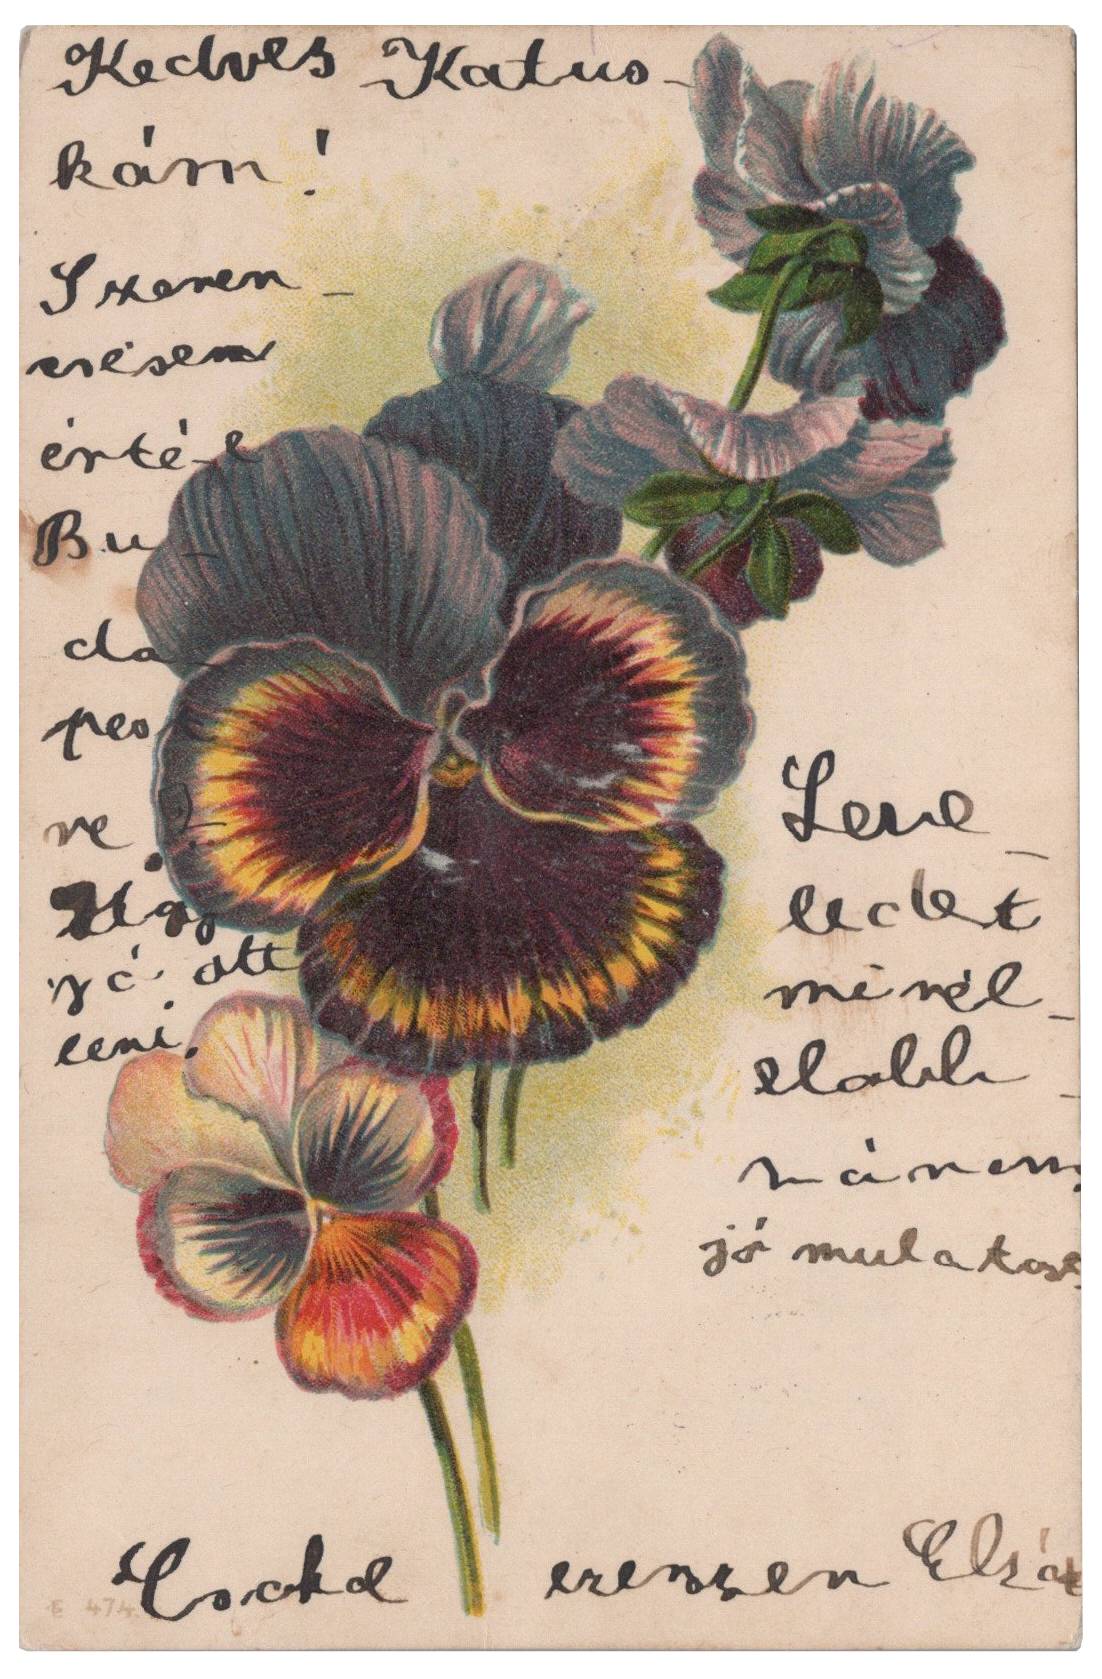 Kedves Katus-
kám!
Szeren-
csésen
érté-l
Bu-
da-
pes
re?
Hogy
jó ott
leni.
Leve-
ledet
minél-
elabb-
várom
jó mulatast
Csokol ezerszer Elzát
E 474.